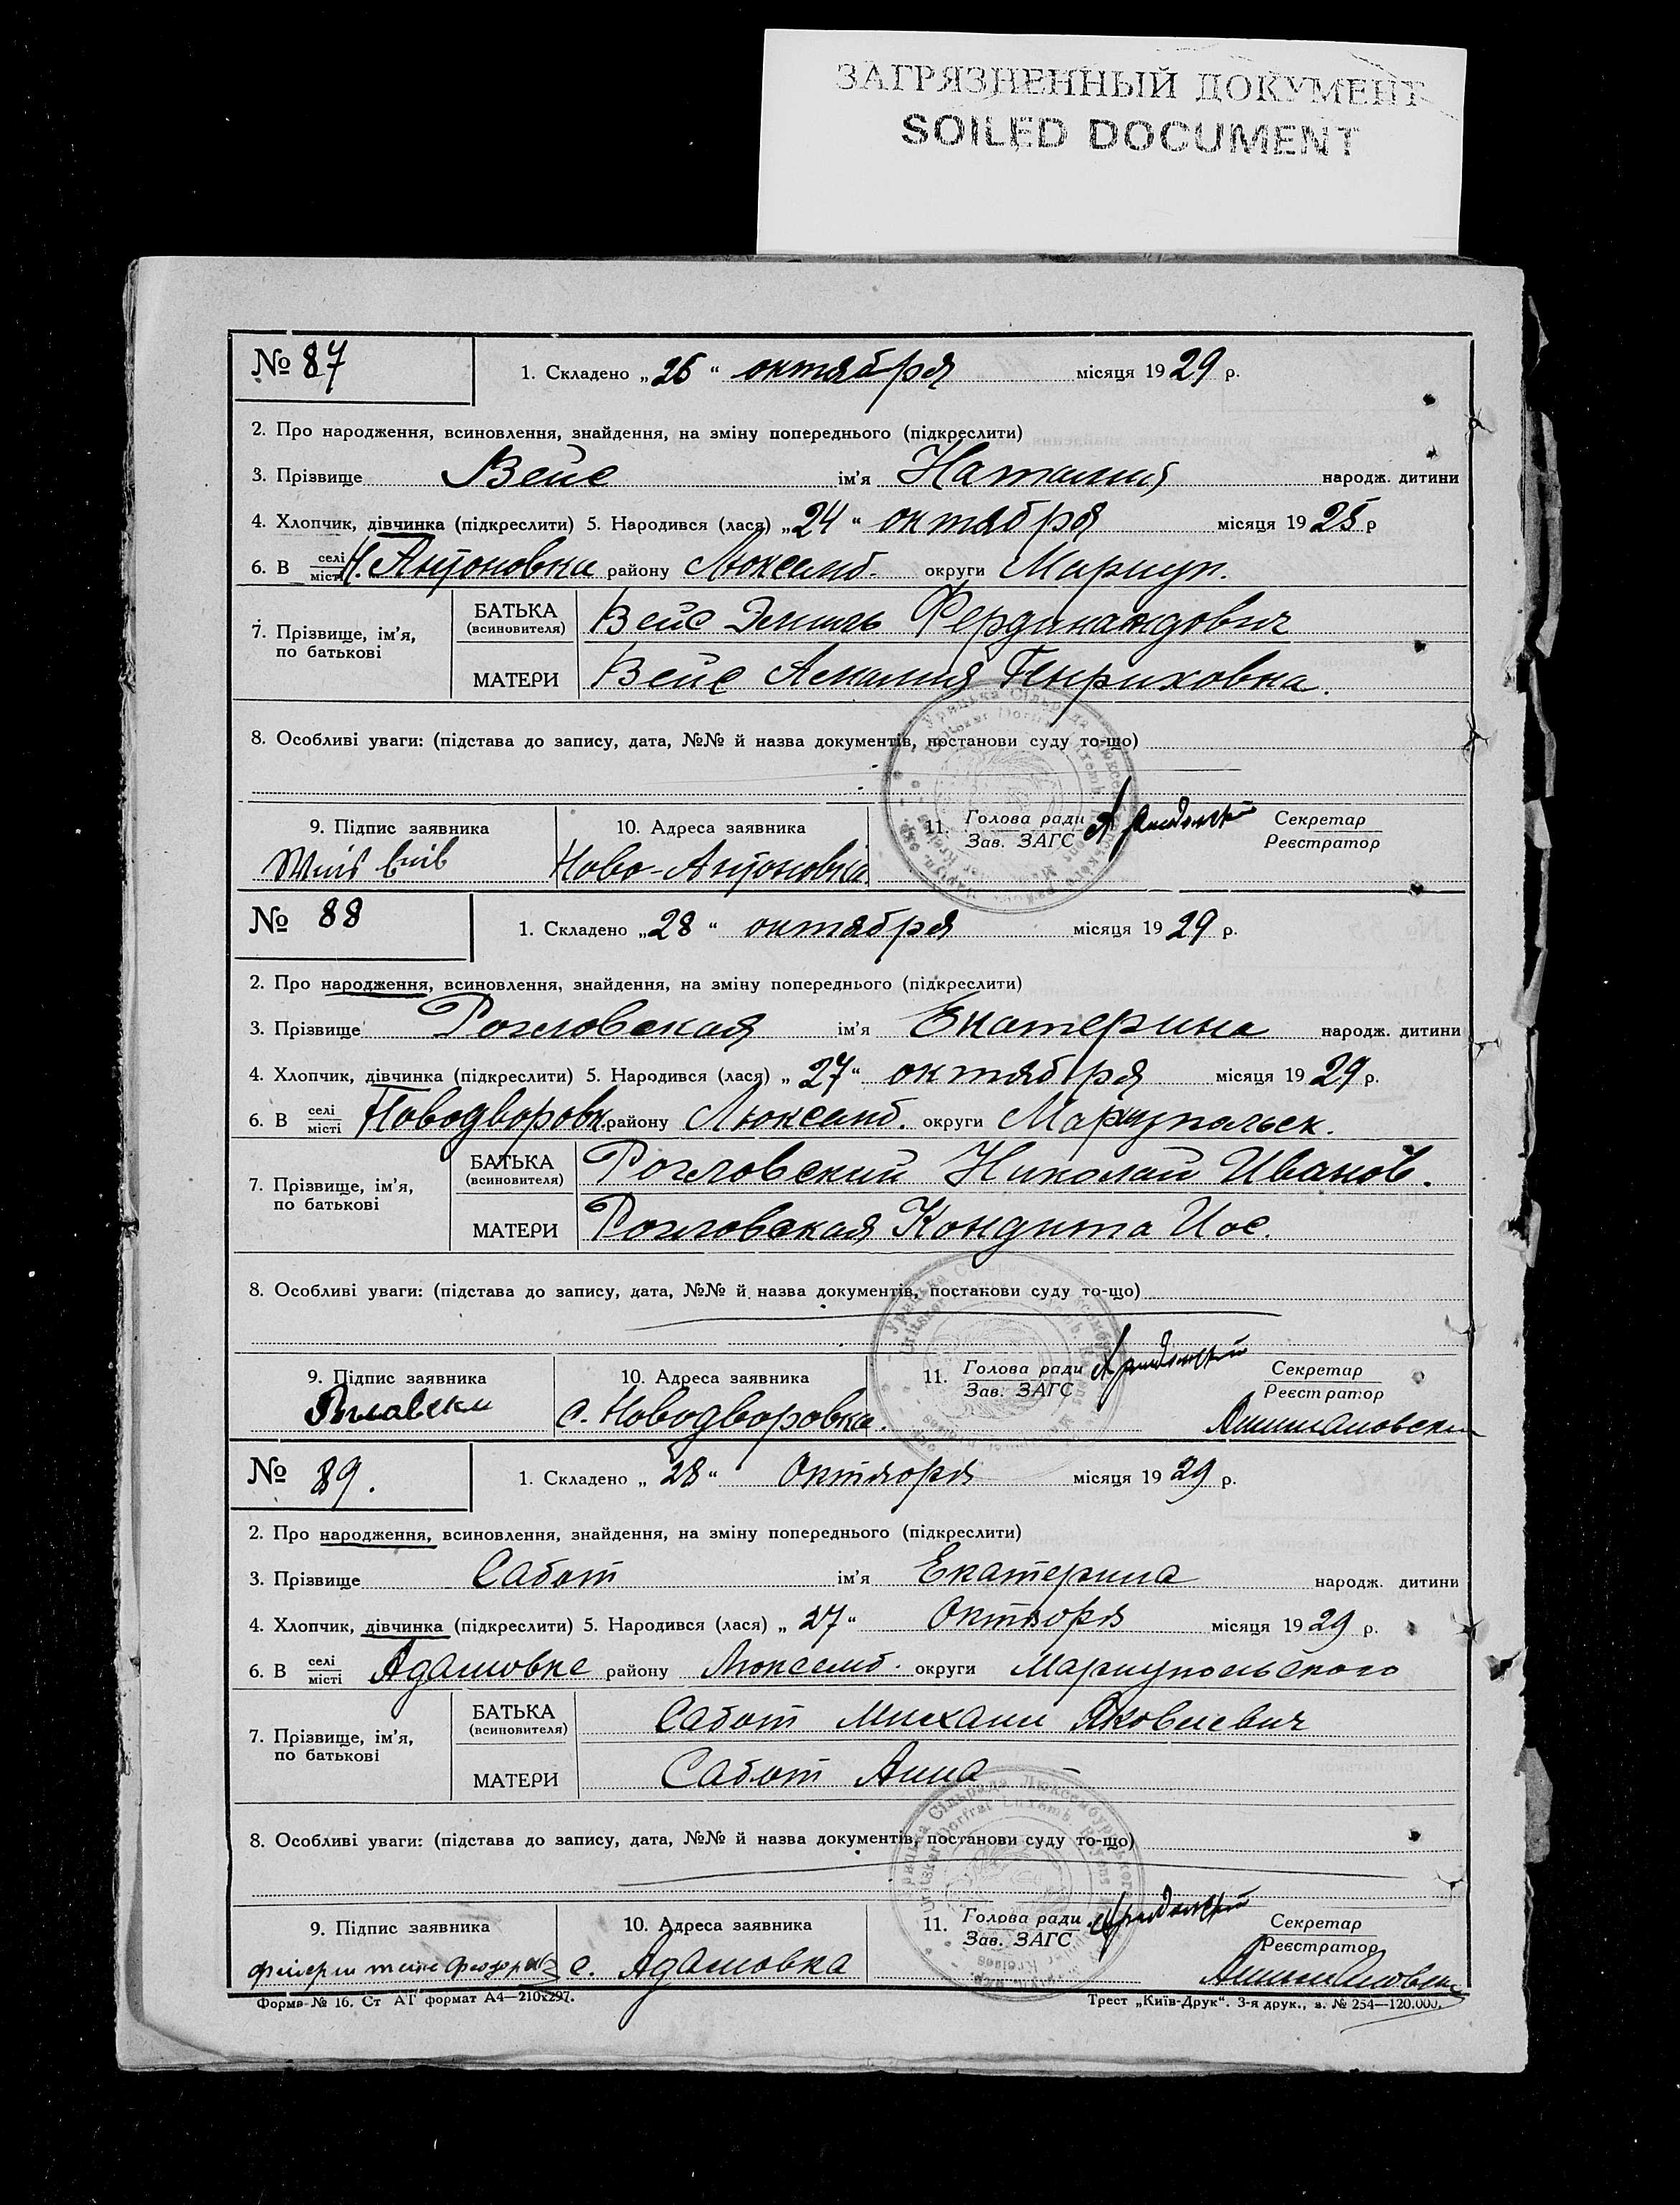 ЗАГРЯЗНЕННЫЙ ДОКУМЕНТ
SOILED DOCUMENT
№ 87
1. Складено „26“ октября місяця 1929 р.
2. Про народження, всиновлення, знайдення, на зміну попереднього (підкреслити)
3. Прізвище Вейс ім'я Наталия народж. дитини
4. Хлопчик, дівчинка (підкреслити) 5. Народився (лася) „24“ октября місяця 1925 р
6. В селі місті Н. Антоновка району Люксемб. округи Мариуп.
7. Прізвище, ім'я, по батькові
БАТЬКА (всиновителя) Вейс Эмиль Фердинандович
МАТЕРИ Вейс Амалия Генриховна.
8. Особливі уваги: (підстава до запису, дата, №№ й назва документів, постанови суду то-що)
9. Підпис заявника 10. Адреса заявника 11. Голова ради Зав. ЗАГС Секретар Реєстратор
Ново-Антоновка
№ 88
1. Складено „28“ октября місяця 1929 р.
2. Про народження, всиновлення, знайдення, на зміну попереднього (підкреслити)
3. Прізвище Рогловская ім'я Екатерина народж. дитини
4. Хлопчик, дівчинка (підкреслити) 5. Народився (лася) „27“ октября місяця 1929 р.
6. В селі місті Новодворовк. району Люксемб. округи Мариупольск.
7. Прізвище, ім'я, по батькові
БАТЬКА (всиновителя) Рогловский Николай Иванов.
МАТЕРИ Рогловская Кондита Иос.
8. Особливі уваги: (підстава до запису, дата, №№ й назва документів, постанови суду то-що)
9. Підпис заявника 10. Адреса заявника 11. Голова ради Зав. ЗАГС Секретар Реєстратор
с. Новодворовка.
№ 89.
1. Складено „28“ Октября місяця 1929 р.
2. Про народження, всиновлення, знайдення, на зміну попереднього (підкреслити)
3. Прізвище Сабот ім'я Екатерина народж. дитини
4. Хлопчик, дівчинка (підкреслити) 5. Народився (лася) „27“ Октября місяця 1929 р.
6. В селі місті Адамовке району Люксемб. округи Мариупольского
7. Прізвище, ім'я, по батькові
БАТЬКА (всиновителя) Сабот Михаил Яковлевич
МАТЕРИ Сабот Анна –
8. Особливі уваги: (підстава до запису, дата, №№ й назва документів, постанови суду то-що)
9. Підпис заявника 10. Адреса заявника 11. Голова ради Зав. ЗАГС Секретар Реєстратор
с. Адамовка
Форма № 16. Ст АТ формат А4—210х297.
Трест „Київ-Друк“. 3-я друк., з. № 254—120.000.